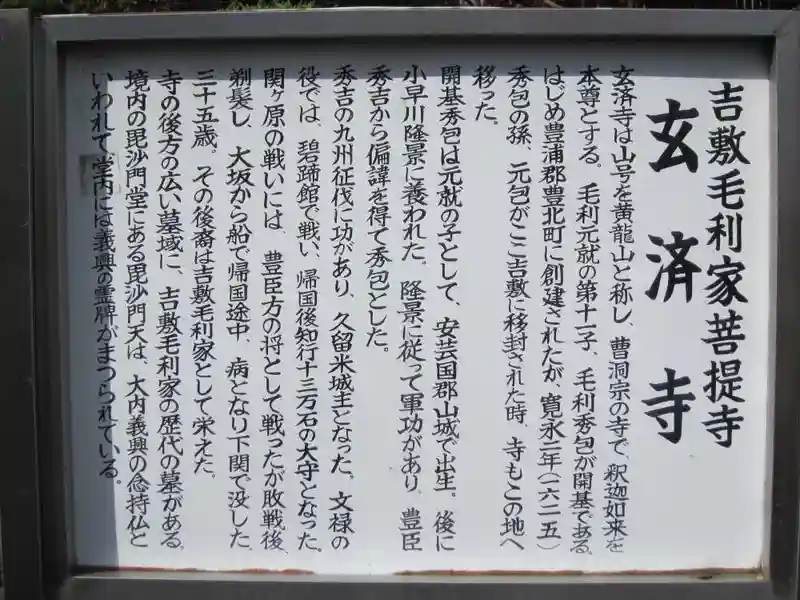 吉敷毛利家菩提寺
玄済寺
玄済寺は山号を黄龍山と称し、曹洞宗の寺で、釈迦如来を
本尊とする。毛利元就の第十一子、毛利秀包が開基である。
はじめ豊浦郡豊北町に創建されたが、寛永二年(一六二五)
秀包の孫、元包がここ吉敷に移封された時、寺もこの地へ
移った。
開基秀包は元就の子として、安芸国郡山城で出生。後に
小早川隆景に養われた。隆景に従って軍功があり、豊臣
秀吉から偏諱を得て秀包とした。
秀吉の九州征伐に功があり、久留米城主となった。文禄の
役では、碧蹄館で戦い、帰国後知行十三万石の大守となった。
関ヶ原の戦いには、豊臣方の将として戦ったが敗戦後、
剃髪し、大坂から船で帰国途中、病となり下関で没した、
三十五歳。その後裔は吉敷毛利家として栄えた。
寺の後方の広い墓域に、吉敷毛利家の歴代の墓がある。
境内の毘沙門堂にある毘沙門天は、大内義興の念持仏と
いわれて堂内には義興の霊牌がまつられている。